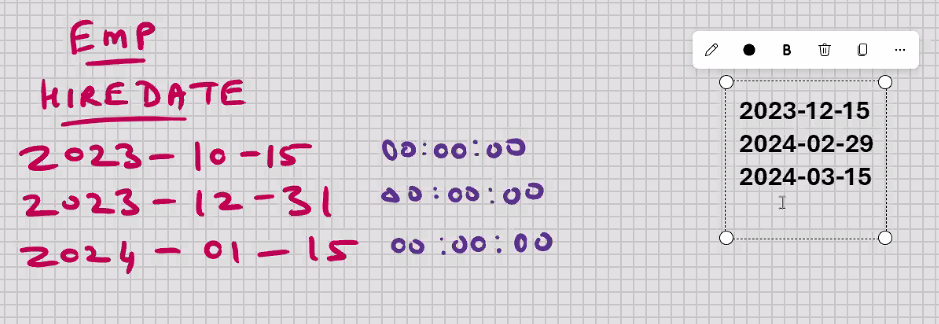 EmP
HIREDATE
2023-10-15 00:00:00
2023-12-31 00:00:00
2024-01-15 00:00:00
B
2023-12-15
2024-02-29
2024-03-15